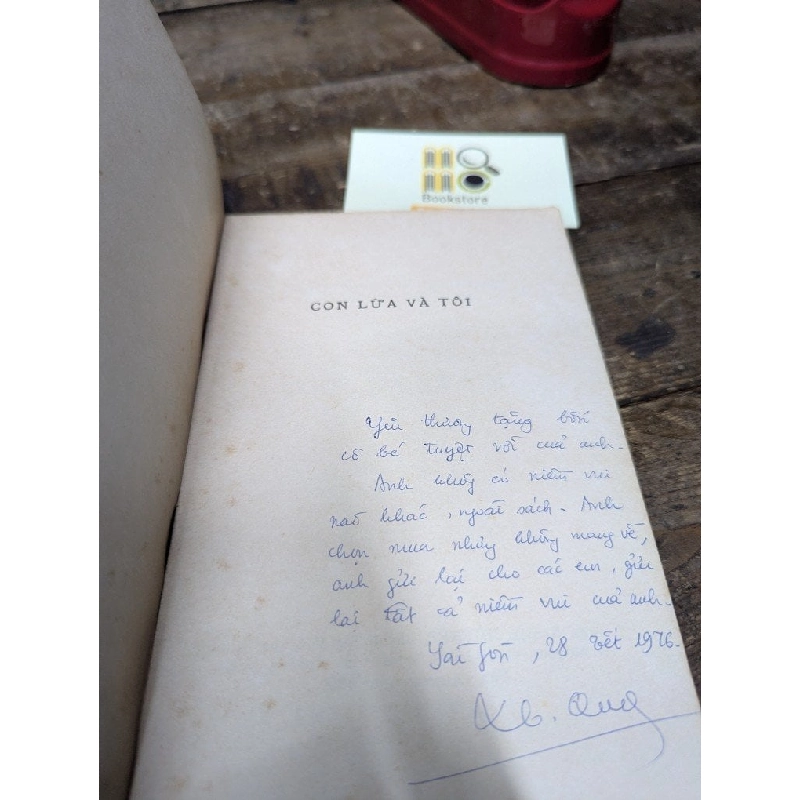 Bookstore
CON LỪA VÀ TÔI
Yêu thương tặng bốn
cô bé tuyệt vời của anh.
Anh không có niềm vui
nào khác, ngoài sách. Anh
chọn mua nhưng không mang về,
anh gửi lại cho các em, gửi
lại tất cả niềm vui của anh.
Sài Gòn, 28 Tết 1976.